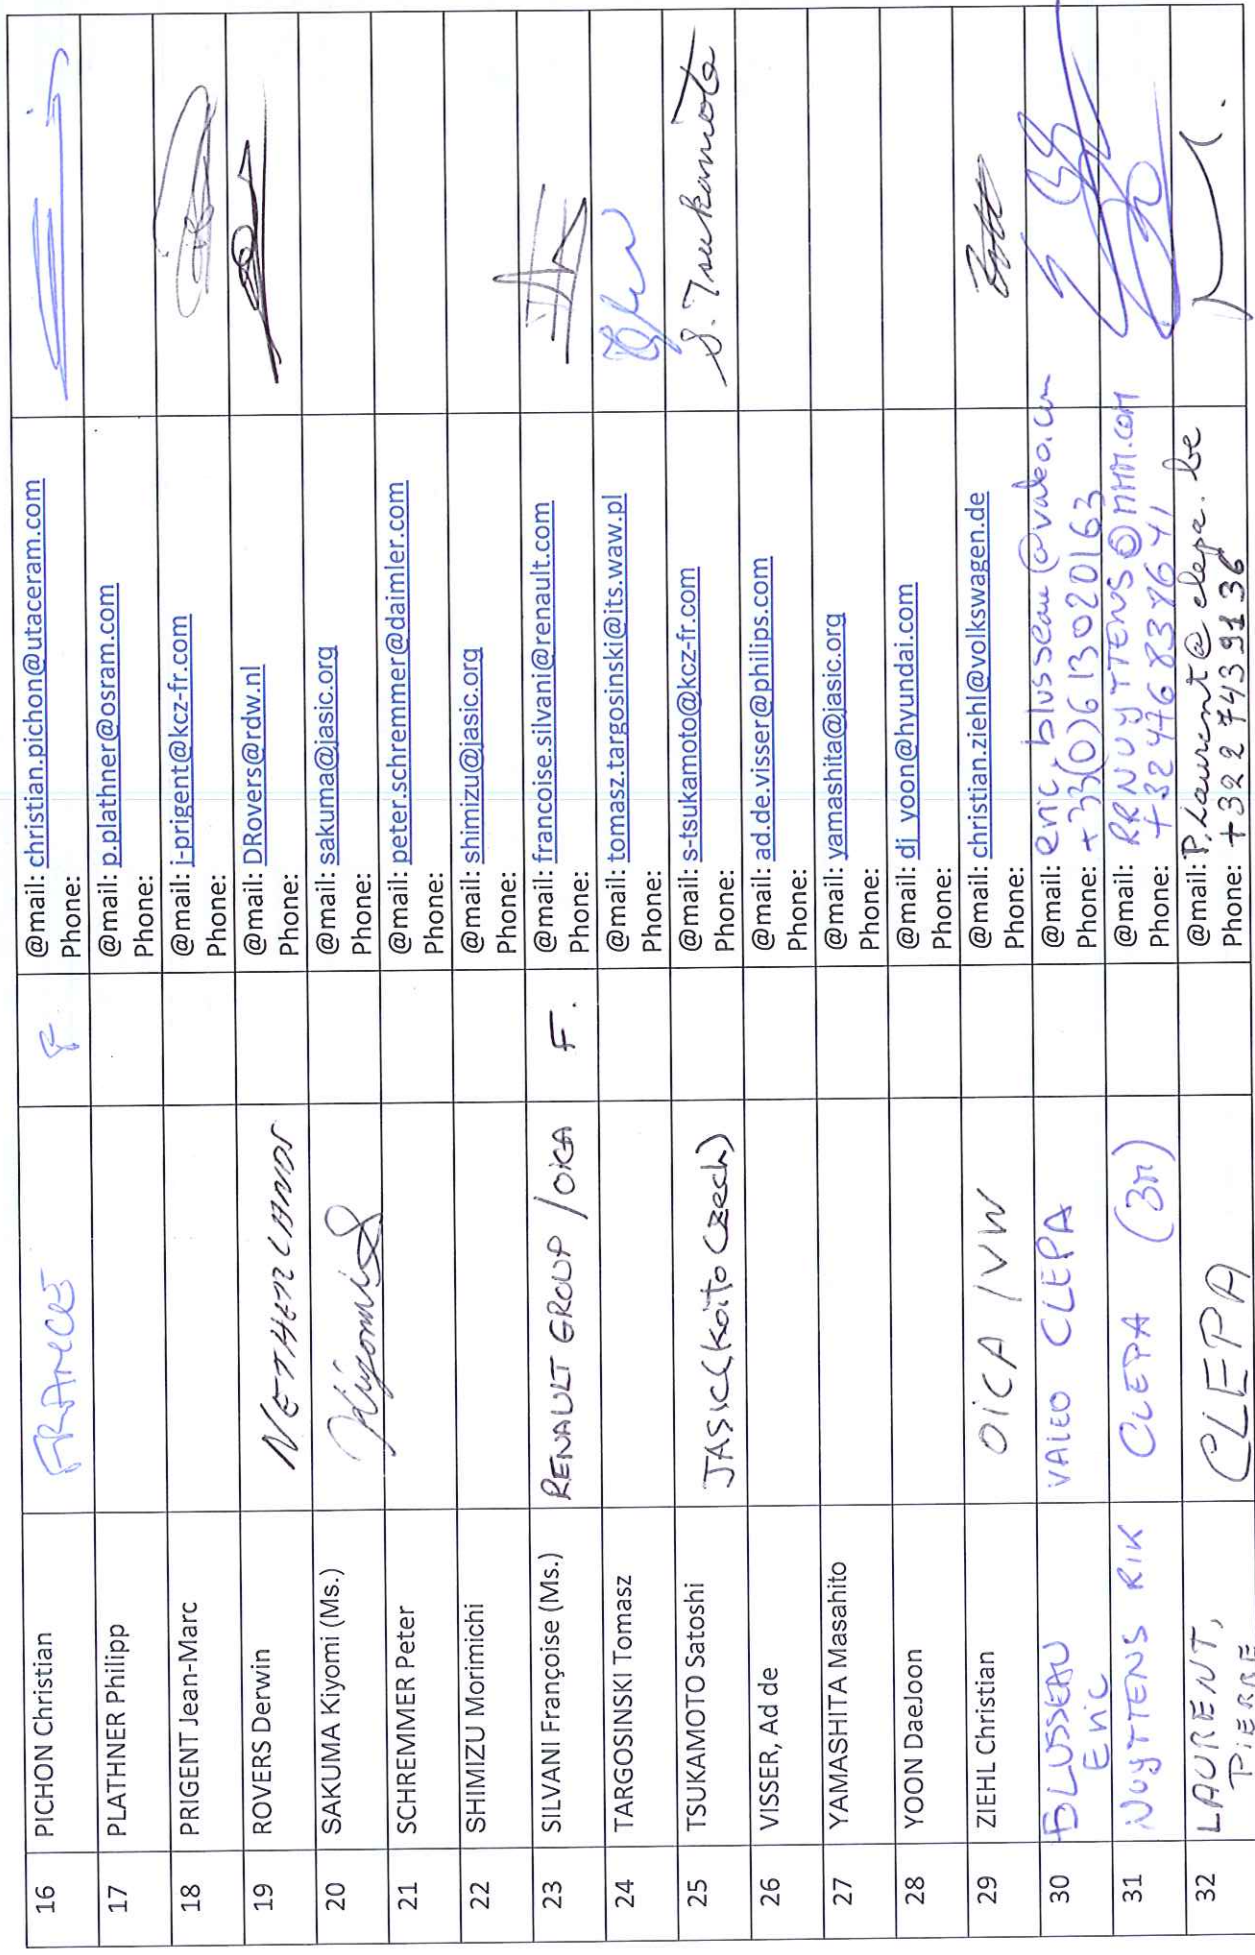 16 PICHON Christian FRANCE F @mail: christian.pichon@utaceram.com
Phone:
17 PLATHNER Philipp @mail: p.plathner@osram.com
Phone:
18 PRIGENT Jean-Marc @mail: j-prigent@kcz-fr.com
Phone:
19 ROVERS Derwin NETHERLANDS @mail: DRovers@rdw.nl
Phone:
20 SAKUMA Kiyomi (Ms.) Kiyomi S @mail: sakuma@jasic.org
Phone:
21 SCHREMMER Peter @mail: peter.schremmer@daimler.com
Phone:
22 SHIMIZU Morimichi @mail: shimizu@jasic.org
Phone:
23 SILVANI Françoise (Ms.) RENAULT GROUP / OICA F. @mail: francoise.silvani@renault.com
Phone:
24 TARGOSINSKI Tomasz @mail: tomasz.targosinski@its.waw.pl
Phone:
25 TSUKAMOTO Satoshi JASIC (Koito Czech) @mail: s-tsukamoto@kcz-fr.com S. Tsukamoto
Phone:
26 VISSER, Ad de @mail: ad.de.visser@philips.com
Phone:
27 YAMASHITA Masahito @mail: yamashita@jasic.org
Phone:
28 YOON DaeJoon @mail: dj_yoon@hyundai.com
Phone:
29 ZIEHL Christian OICA / VW @mail: christian.ziehl@volkswagen.de
Phone:
30 BLUSSEAU VALEO CLEPA @mail: eric.blusseau@valeo.com
Eric Phone: +33(0)613020163
31 NUYTTENS RIK CLEPA (3M) @mail: RRNUYTTENS@MMM.COM
Phone: +32476837641
32 LAURENT, CLEPA @mail: P.Laurent@clepa.be
PIERRE Phone: +3227439136